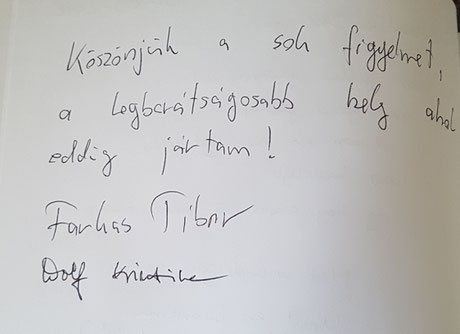 Köszönjük a sok figyelmet,
a legbarátságosabb hely ahol
eddig jártam!
Farkas Tibor
Wolf